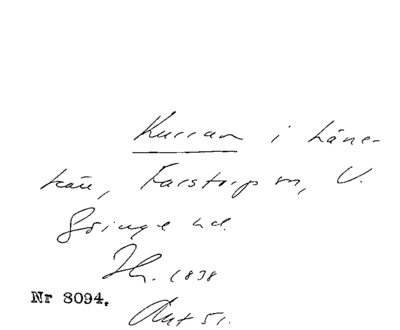 Kurran i Låne-
kärr, Farstorp sn, V.
Göinge hd.
Jh. 1838
Nr 3094.
Ant 51.